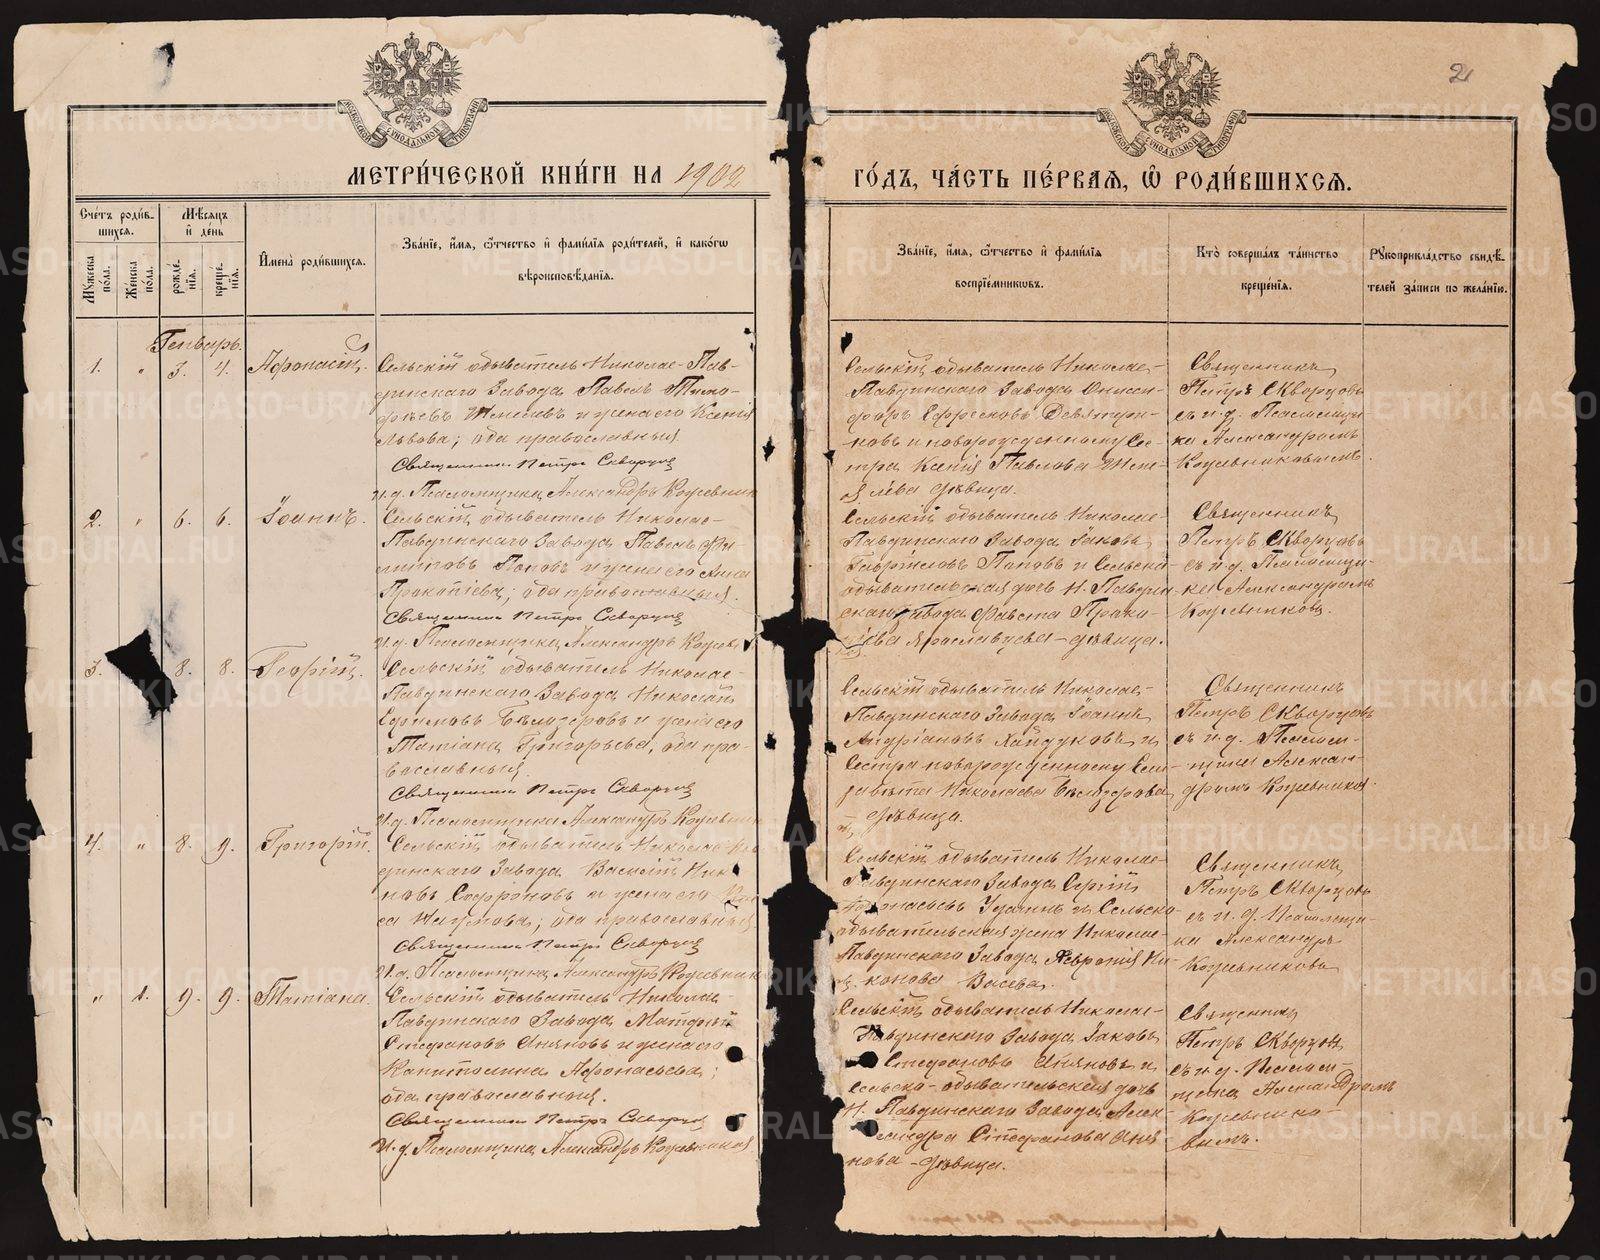 2
МЕТРИ́ЧЕСКОЙ КНИ́ГИ НА 1902
ГО́ДЪ, ЧА́СТЬ ПЕ́РВАѦ, Ѿ РОДИ́ВШИХСѦ.
Сче́тъ роди́в-
шихсѧ.
Мꙋ́жеска по́ла.
Же́нска по́ла.
Мѣ́сѧцъ
и҆ де́нь
рожде́нїѧ.
креще́нїѧ.
И҆мена̀ роди́вшихсѧ.
Зва́нїе, и҆́мѧ, ѻ҆́тчество и҆ фами́лїѧ роди́телей, и҆ како́гѡ
вѣроисповѣ́данїѧ.
Зва́нїе, и҆́мѧ, ѻ҆́тчество и҆ фами́лїѧ
воспрїе́мникѡвъ.
Кто̀ соверша́лъ та́инство
креще́нїѧ.
Рꙋкоприкла́дство свидѣ́-
телей за́писи по жела́нїю.
Генварь.
1. " 3. 4. Афонасій.
Сельскій обыватель Николае-Пав-
динскаго Завода Павелъ Тимо-
фѣевъ и жена его Ксенія
Львова; оба православныя
Священникъ Петръ Скворцов
и. д. Псаломщика Александръ Кожевник
Сельскій обыватель Николае-
Павдинскаго Завода Ониси-
форъ Ефремовъ Девятери-
новъ и новорожденному Се-
тра Ксенія Павлова
дѣвица.
Священникъ
Петръ Скворцовъ
съ и. д. Псаломщи-
ка Александромъ
Кожевниковымъ.
2. " 6. 6. Іоаннъ.
Сельскій обыватель Николае-
Павдинскаго Завода Павелъ Фи-
липовъ Поповъ и жена его Анна
Прокопіева; оба православныя.
Священникъ Петръ Скворцов
и. д. Псаломщика Александръ Кожевн
Сельскій обыватель Николае-
Павдинскаго Завода Іаковъ
Гавріиловъ Поповъ и Сельско-
обывательская дочь Н. Павдин
скаго Завода Фавста Проко-
піева Ярославцева - дѣвица.
Священникъ
Петръ Скворцовъ
съ и. д. Псаломщи-
ка Александромъ
Кожевниковъ.
3. 8. 8. Георгій.
Сельскій обыватель Николае-
Павдинскаго Завода Николай
Ефимовъ и жена его
Татіана Григорьева, оба пра-
вославныя.
Священникъ Петръ Скворцов
И. д. Псаломщика Александръ Кожевник
Сельскій обыватель Николае-
Павдинскаго Завода Іоаннъ
Андріановъ Хайдуковъ и
Сестра новорожденному Ели-
завета Николаева
- дѣвица.
Священникъ
Петръ Скворцовъ
съ и. д. Псалом-
щика Алексан-
дромъ Кожевников.
4. " 8. 9. Григорій.
Сельскій обыватель Николае-
динскаго Завода Василій
новъ Софроновъ и жена его
Наумова; оба православныя
Священникъ Петръ Скворцов
И. д. Псаломщика Александръ Кожевник
Сельскій обыватель Николае-
Павдинскаго Завода Сергій
и Сельско-
обывательская жена Николае-
Павдинскаго Завода Ни-
конова Васева.
Священникъ
Петръ Скворцовъ
съ и. д. Псаломщи-
ка Александръ
Кожевниковъ
" 1. 9. 9. Татіана.
Сельскій обыватель Николае-
Павдинскаго Завода Матфей
Стефановъ и жена его
Капитолина Афонасьева;
оба православныя.
Священникъ Петръ Скворцов
И. д. Псаломщика Александръ Кожевников
Сельскій обыватель Николае-
Павдинскаго Завода Іаковъ
Стефановъ и
сельско-обывательская дочь
Н. Павдинскаго Завода Алек-
сандра Стефанова
нова - дѣвица.
Священникъ
Петръ Скворцовъ
съ и. д. Псалом-
щика Александромъ
Кожевнико-
вымъ.
METRIKI.GASO-URAL.RU